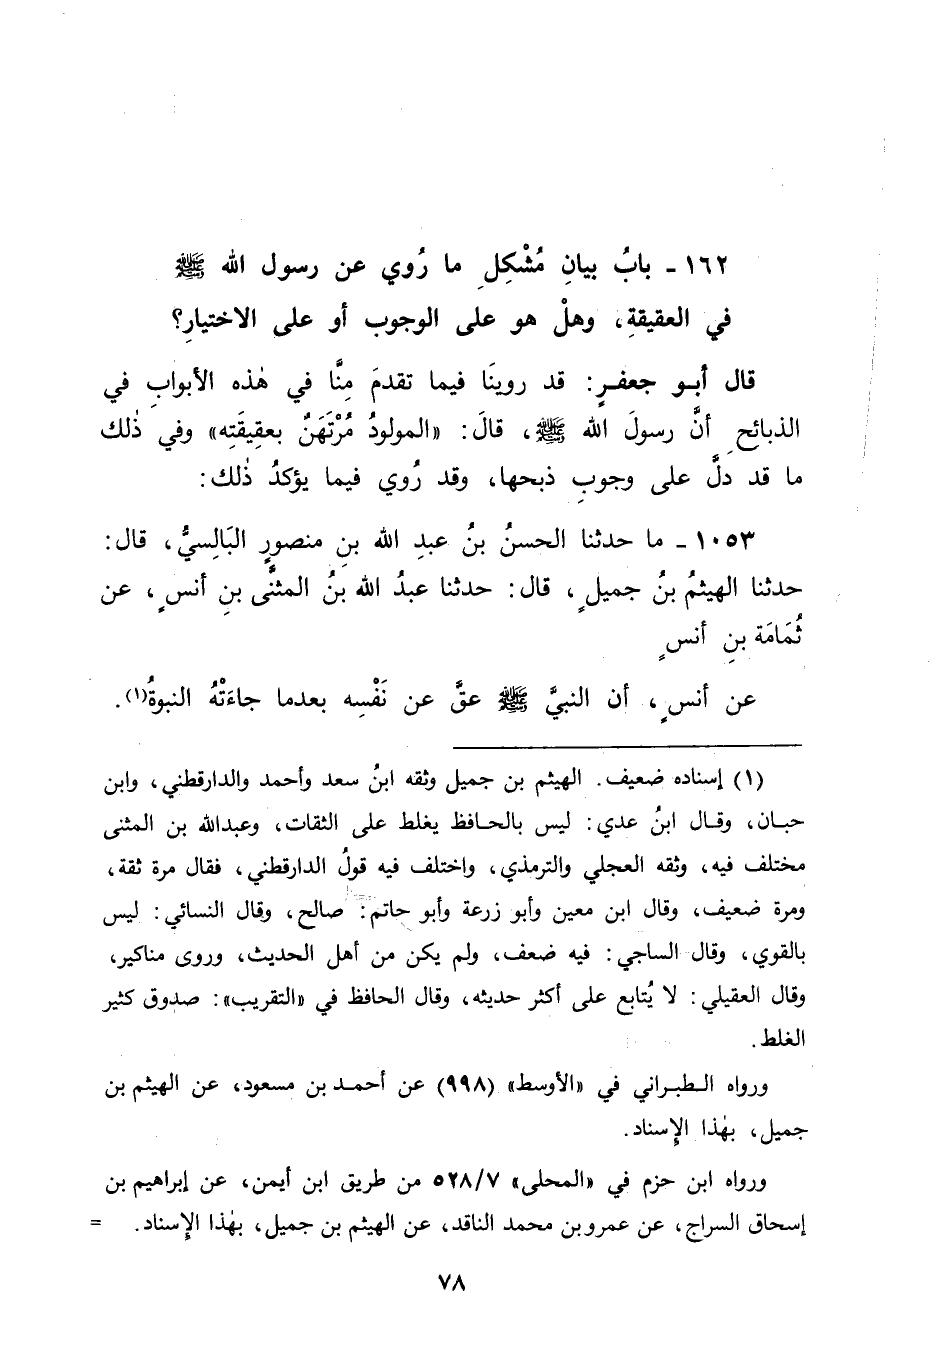 ١٦٢ - بابُ بيانِ مُشْكِلِ ما رُوي عن رسول الله ﷺ
في العقيقةِ، وهلْ هو على الوجوب أو على الاختيارِ؟
قال أبو جعفرٍ: قد روينَا فيما تقدمَ مِنَّا في هٰذه الأبوابِ في
الذبائحِ أنَّ رسولَ الله ﷺ، قالَ: «المولودُ مُرْتَهَنٌ بعقِيقَتِه» وفي ذٰلك
ما قد دلَّ على وجوبِ ذبحها، وقد رُوي فيما يؤكدُ ذٰلك:
١٠٥٣ - ما حدثنا الحسنُ بنُ عبدِ الله بنِ منصورٍ البَالِسيُّ، قال:
حدثنا الهيثمُ بنُ جميلٍ، قال: حدثنا عبدُ الله بنُ المثنَّى بنِ أنسٍ، عن
ثُمَامَة بنِ أنسٍ
عن أنسٍ، أن النبيَّ ﷺ عقَّ عن نَفْسِه بعدما جاءَتْهُ النبوةُ(١).
(١) إسناده ضعيف. الهيثم بن جميل وثقه ابنُ سعد وأحمد والدارقطني، وابن
حبان، وقال ابنُ عدي: ليس بالحافظ يغلط على الثقات، وعبدالله بن المثنى
مختلف فيه، وثقه العجلي والترمذي، واختلف فيه قولُ الدارقطني، فقال مرة ثقة،
ومرة ضعيف، وقال ابن معين وأبو زرعة وأبو حاتم: صالح، وقال النسائي: ليس
بالقوي، وقال الساجي: فيه ضعف، ولم يكن من أهل الحديث، وروى مناكير،
وقال العقيلي: لا يُتابع على أكثر حديثه، وقال الحافظ في «التقريب»: صدوق كثير
الغلط.
ورواه الطبراني في «الأوسط» (٩٩٨) عن أحمد بن مسعود، عن الهيثم بن
جميل، بهٰذا الإسناد.
ورواه ابن حزم في «المحلى» ٥٢٨/٧ من طريق ابن أيمن، عن إبراهيم بن
إسحاق السراج، عن عمرو بن محمد الناقد، عن الهيثم بن جميل، بهٰذا الإسناد. =
٧٨